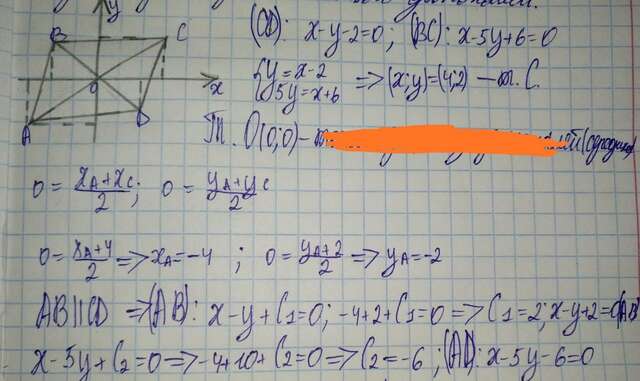 y
B
C
O
x
A
D
(CD): x-y-2=0; (BC): x-5y+6=0
{y=x-2
5y=x+6 => (x;y)=(4;2) - т. C.
Т. O(0;0) -
0 = xA+xC/2; 0 = yA+yC/2
0 = xA+4/2 => xA=-4 ; 0 = yA+2/2 => yA=-2
AB||CD => (AB): x-y+C1=0; -4+2+C1=0 => C1=2; x-y+2=0(AB)
x-5y+C2=0 => -4+10+C2=0 => C2=-6; (AD): x-5y-6=0